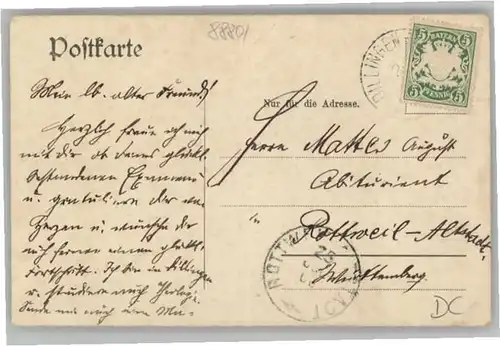 8880
Postkarte
DILLINGEN
BAYERN
5 5
PFENNIG
5 5
Nur für die Adresse.
Mein lb. alter Freund!
Herzlich freue ich mich
mit dir ob deines glückl.
bestandenen Examens
u. gratuliere dir von
Herzen u. wünsche dir
auch ferner einen glückl.
Fortschritt. Ich bin in Dillingen
u. studiere auch
Sende mir auch
Herrn Mattes August
Abiturient
in Rottweil-Altstadt
Württemberg.
ROTTW
DC